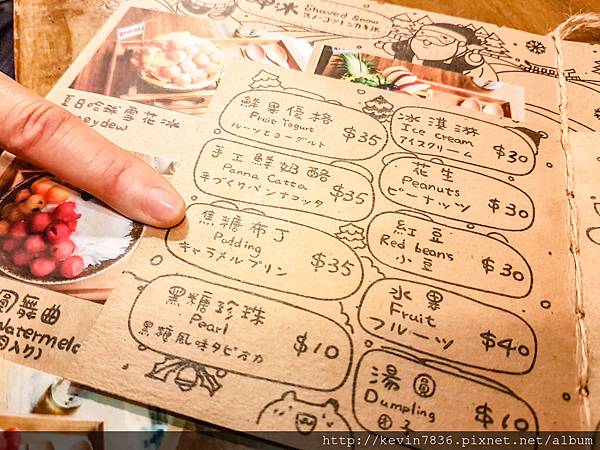 冰
Shaved Snow
夏日哈蜜雪花冰
鮮果優格
Fruit Yogurt
フルーツとヨーグルト
$35
手工鮮奶酪
Panna Catta
手づくりパンナコッタ
$35
焦糖布丁
Pudding
キャラメルプリン
$35
黑糖珍珠
Pearl
黒糖風味タピオカ
$10
冰淇淋
Ice cream
アイスクリーム
$30
花生
Peanuts
ピーナッツ
$30
紅豆
Red beans
小豆
$30
水果
Fruit
フルーツ
$40
湯圓
Dumpling
団子
$10
圓舞曲
http://kevin7836.pixnet.net/album